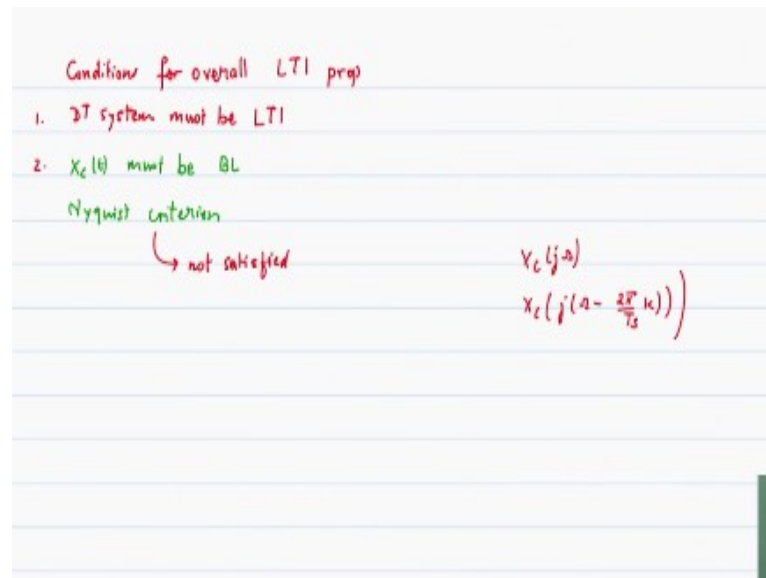 Conditions for overall LTI prop
1. DT system must be LTI
2. Xc(t) must be BL
Nyquist criterion
↳ not satisfied
Yc(jΩ)
Xc(j(Ω - 2π/Ts k))